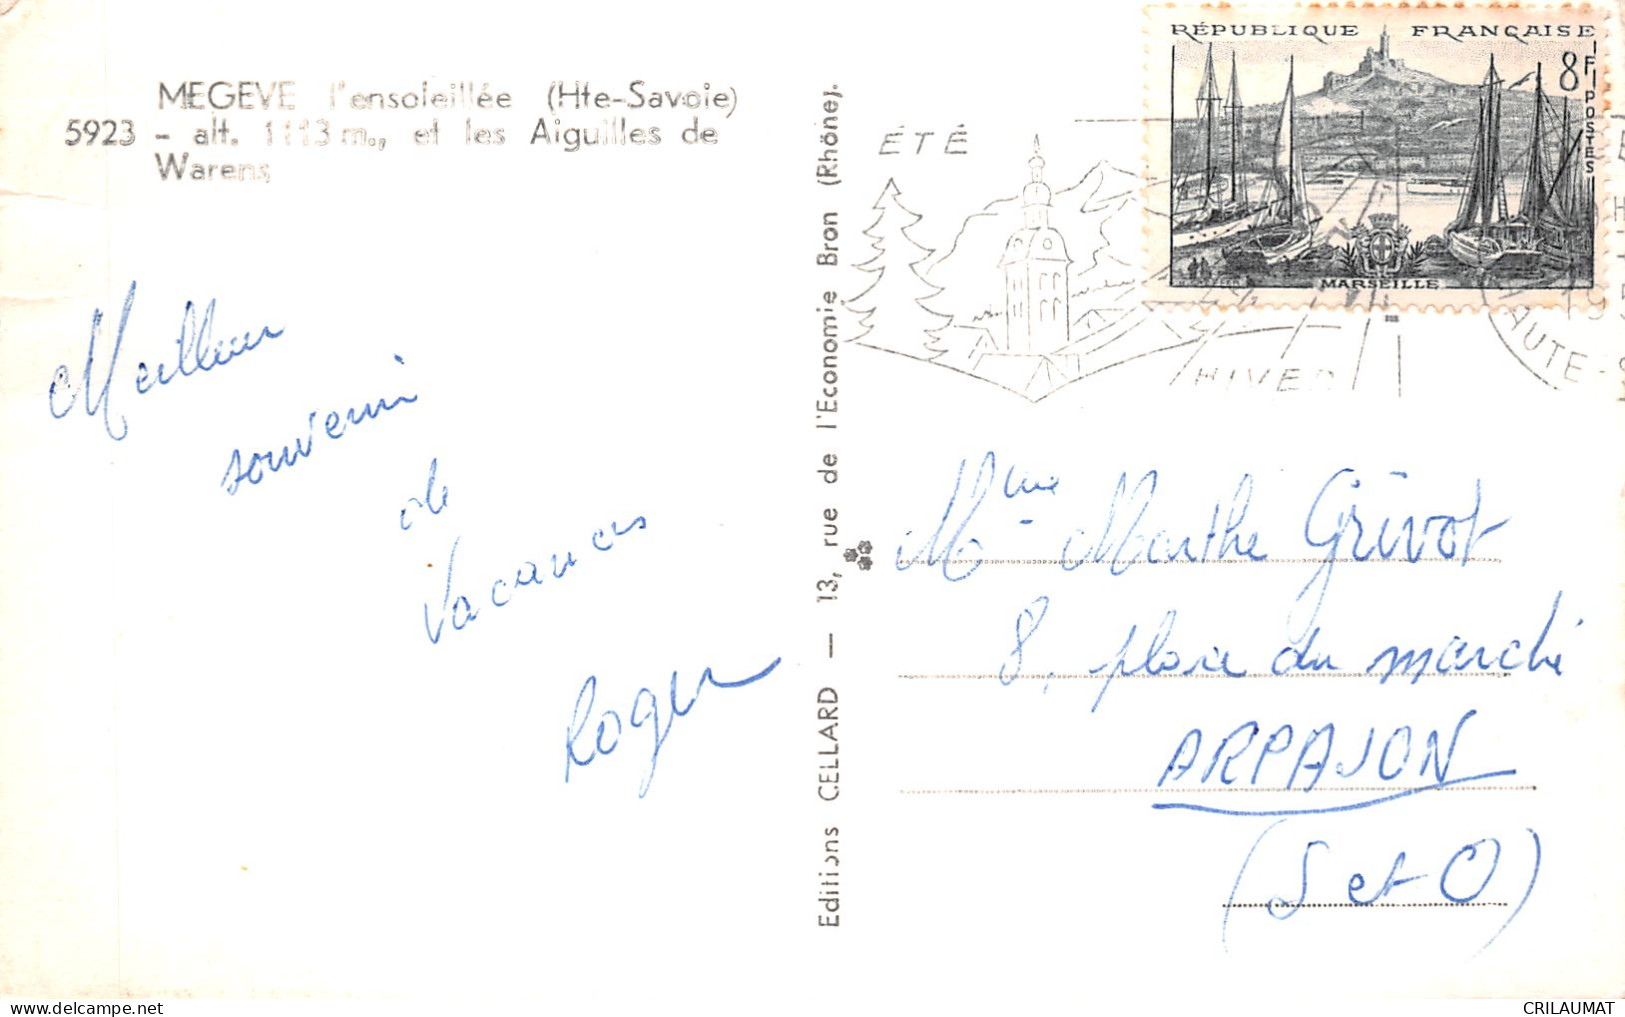 MEGEVE l'ensoleillée (Hte-Savoie)
5923 - alt. 1113 m., et les Aiguilles de
Warens
Meilleur
souvenir
de
Vacances
Roger
Editions CELLARD — 13, rue de l'Economie Bron (Rhône).
ÉTÉ
HIVER
HAUTE-
RÉPUBLIQUE FRANÇAISE
8F
POSTES
MARSEILLE
Mme Marthe Grivot
8, place du marché
ARPAJON
(S et O)
CRILAUMAT